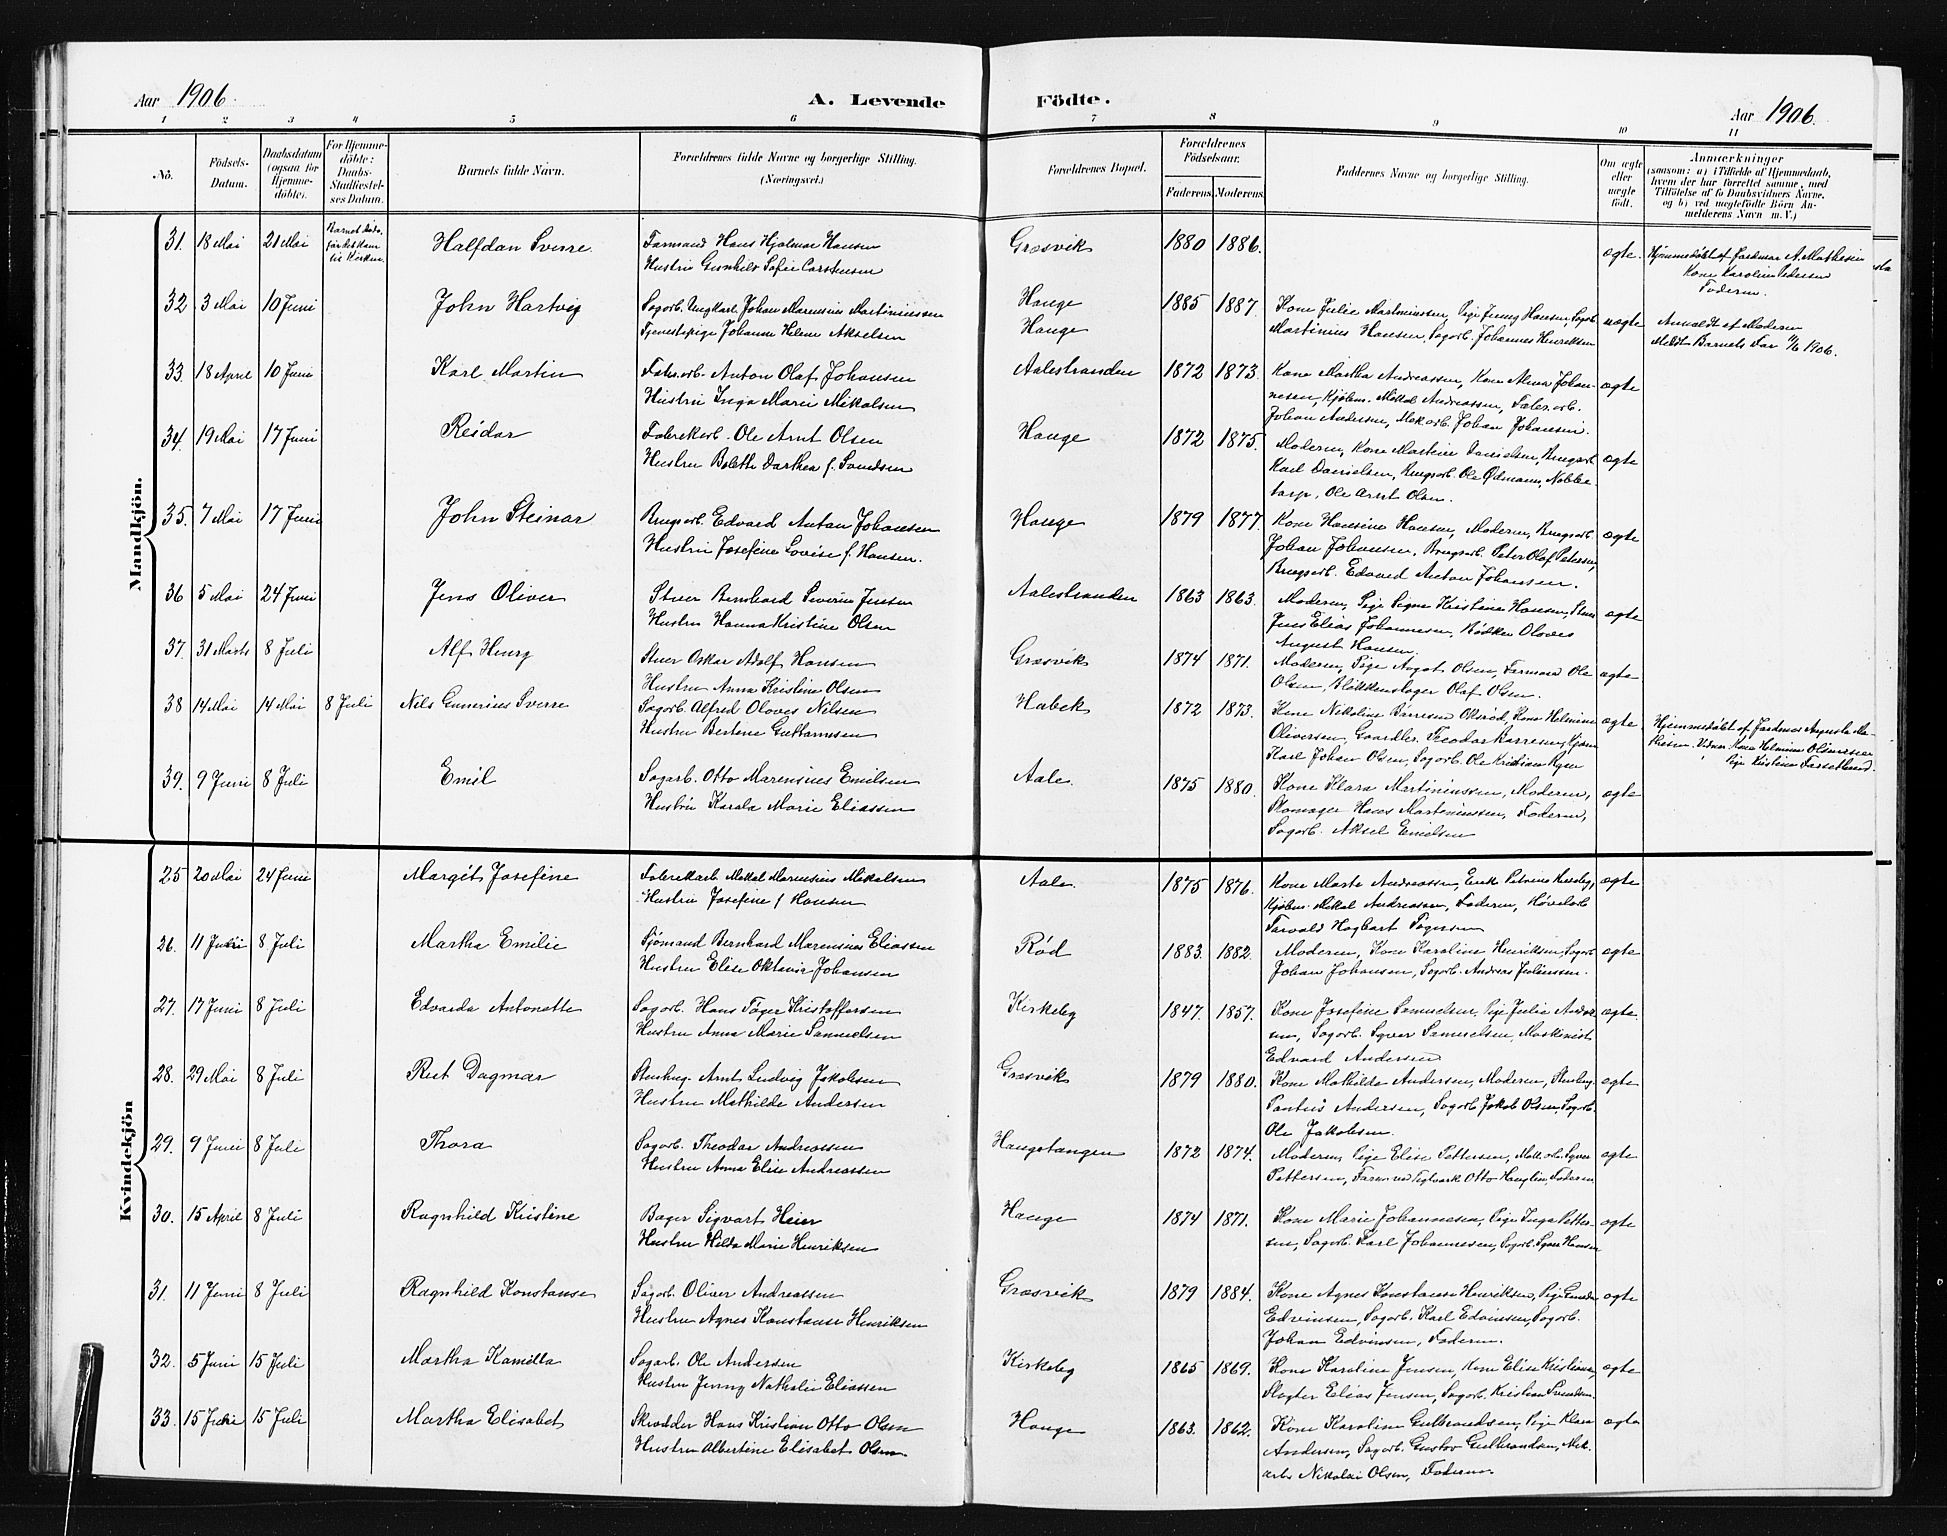 Aar 1906.
A. Levende Födte.
Aar 1906.
1 2 3 4 5 6 7 8 9 10 11
Nö.
Födsels-Datum.
Daabsdatum (ogsaa for Hjemmedöbte).
For Hjemmedöbte: Daabs-Stadfæstelses Datum.
Barnets fulde Navn.
Forældrenes fulde Navne og borgerlige Stilling.
(Næringsvei.)
Forældrenes Bopæl.
Forældrenes Födselsaar.
Faderens Moderens
Faddernes Navne og borgerlige Stilling.
Om ægte eller uægte födt.
Anmærkninger
(saasom: a) i Tilfælde af Hjemmedaab,
hvem der har forrettet samme, med
Tilföielse af to Daabsvidners Navne,
og b) ved uægtefödte Börn Anmelderens Navn m. V.)
Mandkjön.
31. 18 Mai 21 Mai Halfdan Sverre Farmand Hans Hjalmar Hansen Græsvik 1880 1886. ægte. Hjemmedöbt af Jordmor A. Mathesen
Hustru Gunhild Sofie Carstensen Kone Karoline Pedersen
Faderen.
32 3 Mai 10 Juni John Hartvig Sagarb. Ungkarl Johan Marensius Martiniussen Hauge 1885 1887. Kone Julie Martiniussen, Pige Jenny Hansen, Sagarb uægte Anmeldt af Moderen
Tjenestepige Johanne Helene Akselsen Hauge Martinius Hansen, Sagarb. Johannes Henriksen Meldt Barnets Far 1906.
33. 18 April 10 Juni Karl Martin Fabr.arb. Anton Olaf Johansen Aalestranden 1872 1873. Kone Martha Andreassen, Kone Alma Johan- ægte
Hustru Inga Marie Mikalsen nesen, Kjøbm. Mekal Andreassen, Fabr.arb.
Johan Andersen, Mek.arb. Johan Johansen.
34. 19 Mai 17 Juni Reidar Fabrekarb. Ole Arnt Olsen Hauge 1872 1875. Moderen, Kone Martine Danielsen, Brugsarb ægte
Hustru Bolette Dorthea f. Svendsen Karl Danielsen, Brugsarb. Ole Ødman, Nabbe-
torp, Ole Arnt Olsen.
35. 7 Mai 17 Juni John Steinar Brugsarb. Edvard Anton Johansen Hauge 1879 1877. Kone Hansine Hansen, Moderen, Brugsarb ægte
Hustru Josefine Lovise f. Hansen. Johan Johansen, Brugsarb. Peter Olaf Petersen,
Brugsarb. Edvard Anton Johansen.
36 5 Mai 24 Juni Jens Oliver Stuer Bernhard Severin Jensen Aalestranden 1863 1863. Moderen, Pige Signe Kristine Hansen, Stuer ægte
Hustru Hanna Kristine Olsen Jens Elias Johannesen, Bødker Oloves
August Hansen.
37. 31 Marts 8 Juli Alf Henry Stuer Oskar Adolf Hansen Græsvik 1874 1871. Moderen, Pige Aagot Olsen, Farmand Ole ægte
Hustru Anna Kristine Olsen Olsen, Blikkenslager Olaf Olsen.
38 14 Mai 14 Mai 8 Juli Nils Gunerius Sverre Sagarb. Alfred Oloves Nilsen Habek 1872 1873. Kone Nikoline Børresen Oksrød, Kone Helmine ægte Hjemmedöbt af Jordmor Augusta Ma-
Hustru Bertine Guttormsen Oliversen, Gaardbr. Teodor Karresen, thesen. Vidner Kone Helmine Olsen
Karl Johan Olsen, Sagarb. Ole Kristian Pige Kristine Torsetlund.
39. 9 Juni 8 Juli Emil Sagarb. Otto Marensius Emilsen Aale. 1875 1880. Kone Klara Martiniussen, Moderen, ægte
Hustru Karala Marie Eliassen Skomager Hans Martiniussen, Faderen,
Sagarb. Aksel Emilsen
Kvindekjön
25 20 Mai 24 Juni Margit Josefine Fabrekarb Mekal Marensius Mikalsen Aale. 1875 1876. Kone Marte Andreassen, Enke Petrine ægte
Hustru Josefine f Hansen Kjøbm. Mekal Andreassen, Faderen, Høvelarb
Torvald Hagbart Tøgersen
26. 11 Juni 8 Juli Martha Emilie Sjømand Bernhard Marensius Eliassen Rød 1883. 1882. Moderen, Kone Karoline Henriksen, Sagarb ægte
Hustru Elise Oktavie Johansen Johan Johansen, Sagarb. Andreas Juliussen.
27. 17 Juni 8 Juli Edvarda Antonette Sagarb. Hans Tøger Kristoffersen Kirkeby 1847. 1857. Kone Josefine Samuelsen, Pige Julie Ander- ægte.
Hustru Anna Marie Samuelsen sen, Sagarb. Syver Samuelsen, Maskinist
Edvard Andersen
28. 29 Mai 8 Juli Rut Dagmar Stenhug. Arnt Ludvig Jakobsen Græsvik 1879 1880. Kone Mathilde Andersen, Moderen, Stenhug ægte
Hustru Mathilde Andersen Pontus Andersen, Sagarb Jakob Olsen, Sagarb.
Ole Jakobsen.
29. 9 Juni 8 Juli Thora Sagarb. Theodor Andreassen Haugstangen 1872 1874. Moderen, Pige Elise Pettersen, Mek.arb. Syver ægte
Hustru Anna Elise Andreassen Pettersen, Farm. ved Teglværk Otto Hauglin, Faderen
30. 15 April 8 Juli Ragnhild Kristine Bager Sigvart Heier Hauge 1874 1871. Kone Marie Johannesen, Pige Inga Petter- ægte
Hustru Hilda Marie Henriksen sen, Sagarb. Karl Johannessen, Sagarb. Syver Hansen
31. 11 Juni 8 Juli Ragnhild Konstanse Sagarb. Oliver Andreassen Græsvik 1879 1884. Kone Agnes Konstanse Henriksen, Pige ægte
Hustru Agnes Konstanse Henriksen Edvinsen, Sagarb. Karl Edvinsen, Sagarb.
Johan Edvinsen, Faderen.
32. 5 Juni 15 Juli Martha Kamilla Sagarb. Ole Andersen Kirkeby 1865 1869. Kone Karoline Jensen, Kone Elise Kristiansen, ægte
Hustru Jenny Nathalie Eliassen Slagter Elias Jensen, Sagarb. Kristian Svendsen.
33. 15 Juni 15 Juli Martha Elisabet Skrædder Hans Kristian Otto Olsen Hauge 1863. 1862. Kone Karoline Gulbrandsen, Pige Klara ægte
Hustru Albertine Elisabet Olsen Andersen, Sagarb. Gustav Gulbrandsen, Mek.
arb. Nikolai Olsen, Faderen.